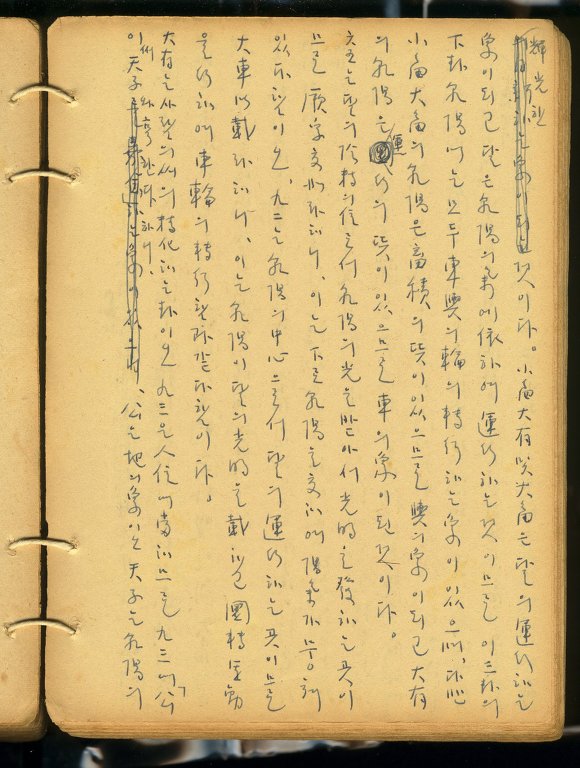 輝光한 것이다。小畜大有 및 大畜은 달의 運行하는
象이 되고 달은 乾陽의 氣에 依하여 運行하는 것이므로 이 三卦의
下卦 乾陽에는 모두 車輿의 輪의 轉行하는 象이 있으며,
小畜大畜의 乾陽은 畜積의 뜻이 있으므로 輿의 象이 되고 大有
의 乾陽은 運行의 뜻이 있으므로 車의 象이 된 것이다。
六五는 달의 陰精의 位로서 乾陽의 光을 받아서 光明을 發하는 곳이
므로 厥孚交如라 하니, 이는 下로 乾陽을 交하여 陽氣가
있는 것이오, 九二는 乾陽의 中心으로서 달의 運行하는 곳이므로
大車以載라 하니, 이는 乾陽이 달의 光明을 載하고 圓轉運動
을 行하여 車輪의 轉行함과 같다 함이다。
大有는 轉化하는 卦이오 九三은 人位에 當하므로 九三에「公
이 써 天子와 亨한다 하니, 公은 地의 象이오 天子는 乾陽의